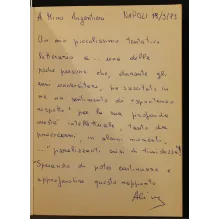 A Mino Argentiero NAPOLI 19/3/93
Un mio piccolissimo tentativo
letterario a... una delle
poche persone che, durante gli
anni universitari, ha suscitato in
me un sentimento di "spontaneo
rispetto" per la sua profonda
onestà intellettuale, tanto da
provocarmi, in alcuni momenti,
"paralizzanti crisi di timidezza".
Sperando di poter continuare e
approfondire questo rapporto